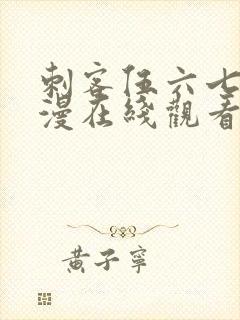 刺客伍六七
漫在綫觀看
黃子寧